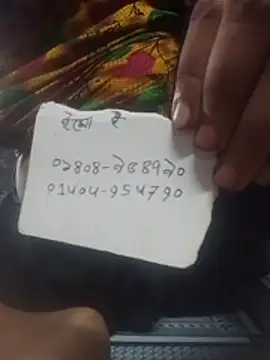 ইমো
০১৪০৪-৯৫৪৭৯০
01404-954790